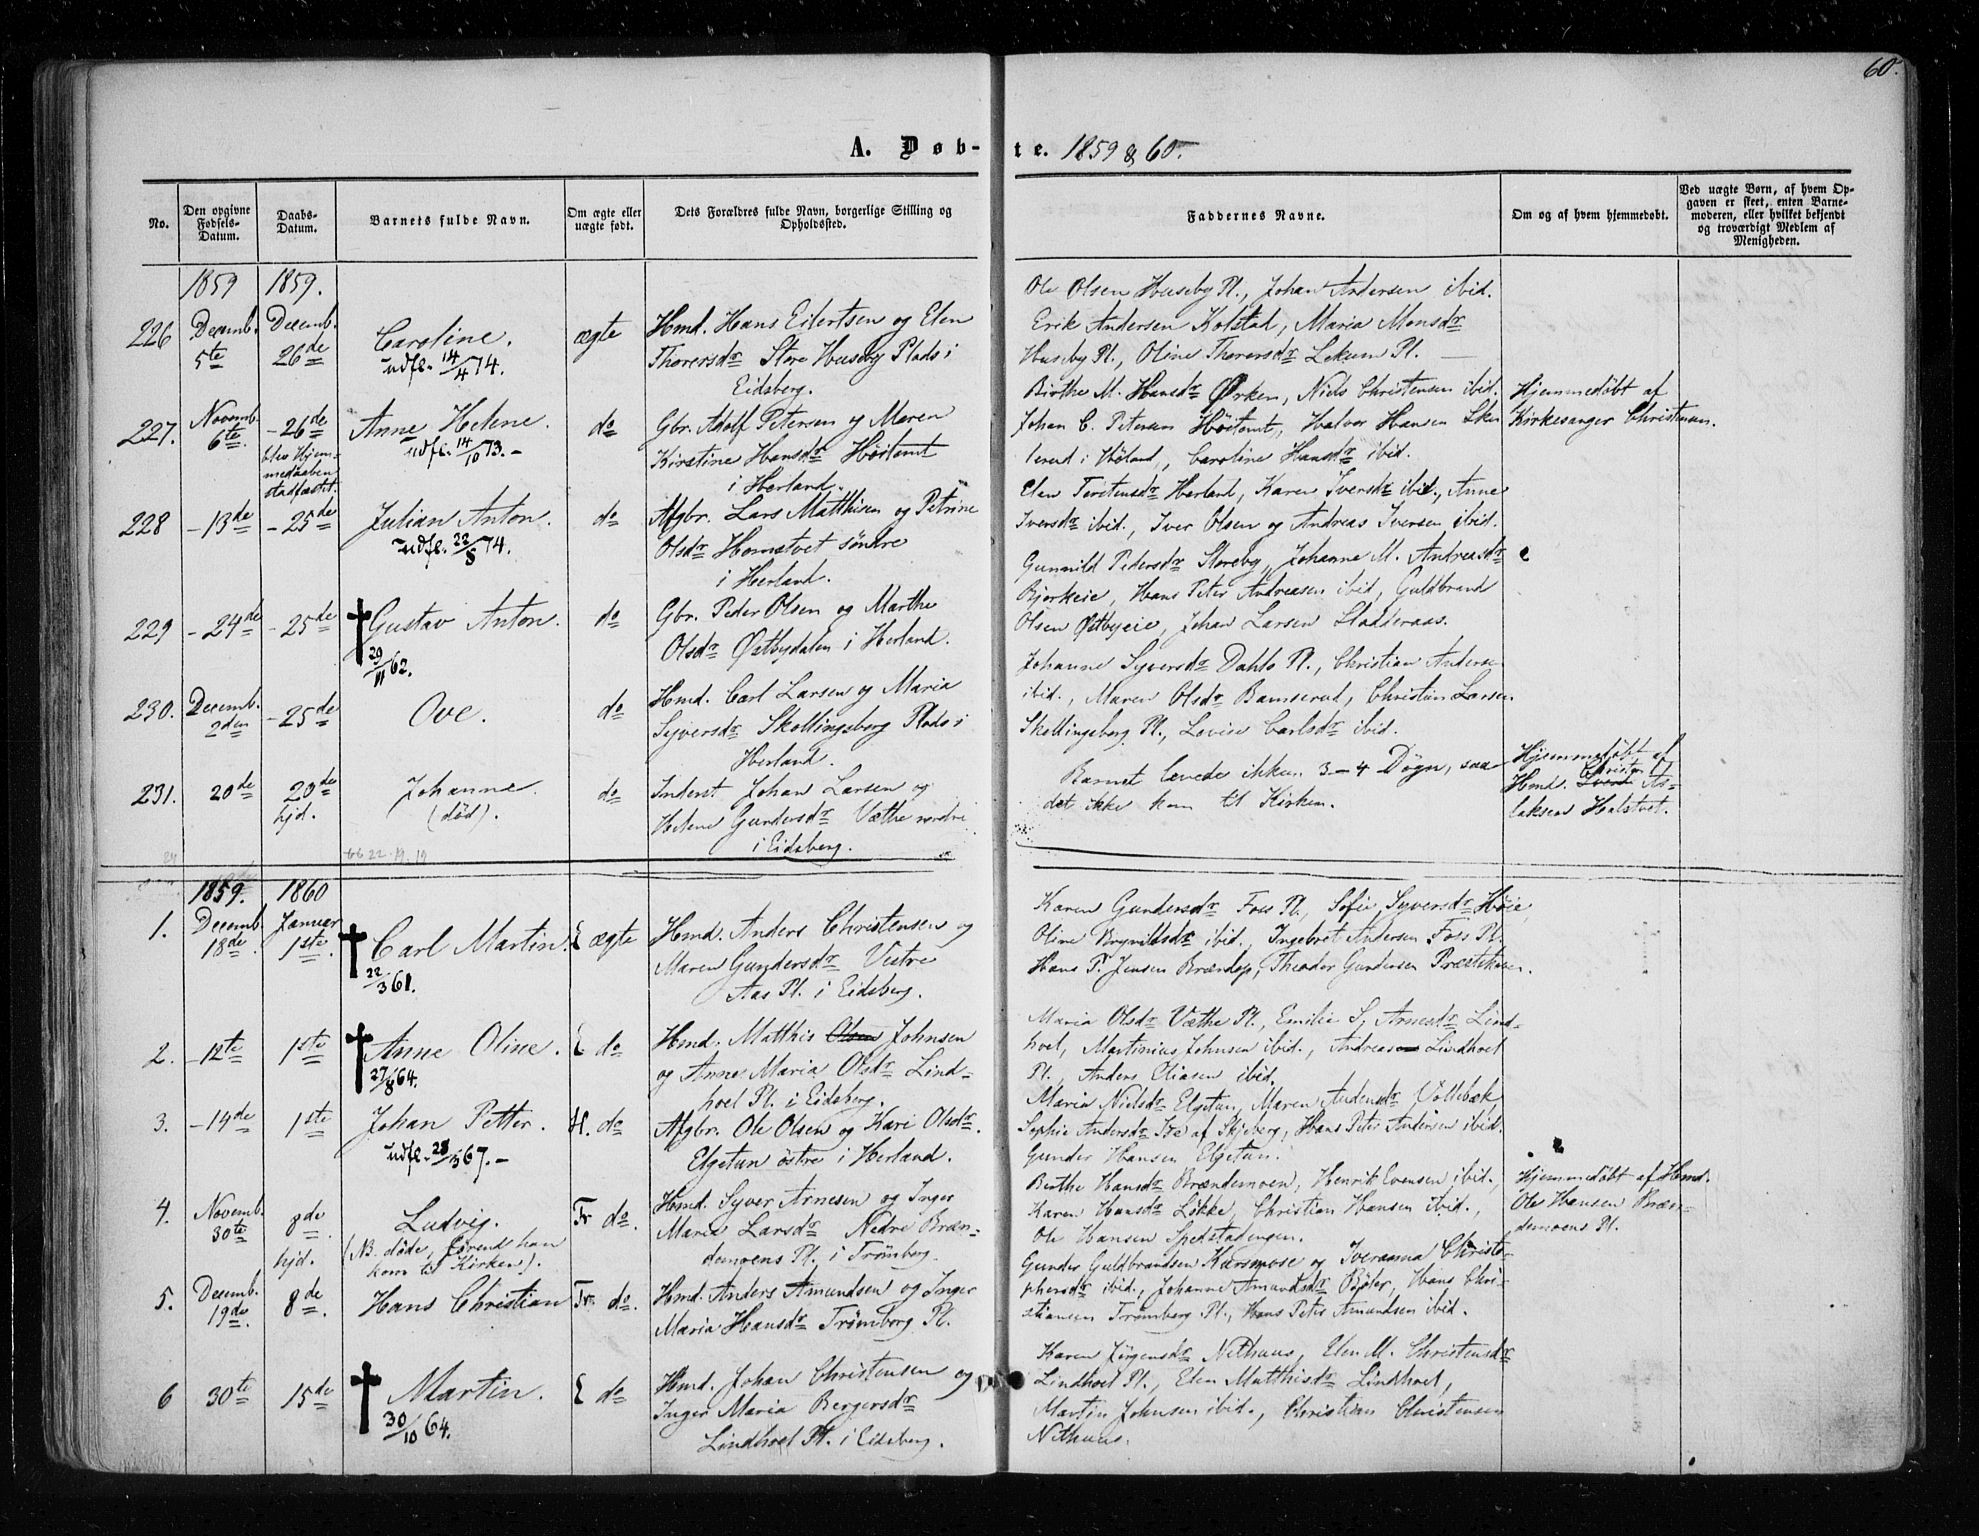 60.
A. Døb-te. 1859 & 60.
No.
Den opgivne Fødsels-Datum.
Daabs-Datum.
Barnets fulde Navn.
Om ægte eller uægte født.
Dets Forældres fulde Navn, borgerlige Stilling og Opholdssted.
Faddernes Navne.
Om og af hvem hjemmedøbt.
Ved uægte Børn, af hvem Opgaven er skeet, enten Barnemoderen, eller hvilket bekjendt og troværdigt Medlem af Menigheden.
1859 1859.
226 Decemb. 5te Decemb. 26de
Caroline.
udfl. 14/4 74.
ægte
Hmd. Hans Eilertsen og Elen
Thorersdr Store Huseby Plads i
Eidsberg.
Ole Olsen Huseby Pl., Johan Andersen ibid.
Erik Andersen Kolstad, Maria Monsdr
Huseby Pl., Oline Thorersdr Lekum Pl.
227. Novemb. 6te - 26de
blev Hjem-
medaaben
stadfæstet.
Anne Helene.
udfl. 14/10 73.-
do
Gbr. Adolf Petersen og Maren
Kirstine Hansdr Höitomt
i Herland.
Birthe M. Hansdr Ørken, Niels Christensen ibid.
Johan C. Petersen Höitomt, Halvor Hansen
i Höland, Caroline Hansdr ibid.
Hjemmedöbt af
Kirkesanger Christensen.
228 - 13de - 25de
Julian Anton.
udfl. 22/8 74.
do
Afgbr. Lars Matthisen og Petrine
Olsdr Homstvet søndre
i Herland.
Elen Torstensdr Herland, Karen Iversdr ibid., Anne
Iversdr ibid., Iver Olsen og Andreas Iversen ibid.
229 - 24de - 25de
Gustav Anton.
29/11 62.
do
Gbr. Peder Olsen og Marthe
Olsdr Østbydalen i Herland.
Gunnild Pedersdr Storeby, Johanne M. Andreasdr
Bjorkeie, Hans Peter Andreasen ibid, Guldbrand
Olsen Østbyeie, Johan Larsen
230. Decemb. 2den - 25de
Ove.
do
Hmd. Carl Larsen og Maria
Syversdr Skollingsberg Plads i
Herland.
Johanne Syversdr Dahlo Pl., Christian Andersen
ibid., Maren Olsdr Bamserud, Christian Larsen
Skollingsberg Pl., Lovise Carlsdr ibid.
231. 20de 20de
hjd.
Johanne.
(död).
do
Inderst Johan Larsen og
Helene Gundersdr Væthe nordre
i Eidsberg.
Barnet levede ikkun 3-4 Dögn, saa
det ikke kom til Kirken.
Hjemmedöbt af
Hmd. Christen As-
laksen Holstvet.
1859. 1860
1. Decemb. 18de Januar 1ste.
Carl Martin.
22/3 61.
E ægte
Hmd. Anders Christensen og
Maren Gundersdr Vestre
Aas Pl. i Eidsberg.
Karen Gundersdr Foss Pl., Sofie Syversdr Höie,
Oline Brynildsdr ibid., Ingebret Andersen Foss Pl.
Hans P. Jensen Brændop, Theodor Gundersen
2. - 12te 1ste
Anne Oline.
27/8 64.
E do
Hmd. Matthis Olsen Johnsen
og Anne Maria Olsdr Lind-
hoel Pl. i Eidsberg.
Maria Olsdr Væthe Pl., Emilie S. Arnesdr Lind-
hoel, Martinius Johnsen ibid., Andreas Lindhoel
Pl., Anders Eliasen ibid.
3. - 14de 1ste
Johan Petter.
udfl. 28/3 67.-
H. do
Afgbr. Ole Olsen og Kari Olsdr.
Elgetun östre i Herland.
Maria Nielsdr Elgetun, Maren Andersdr Vollebæk,
Sophie Andersdr Ise af Skjeberg, Hans Peter Andersen ibid.
Gunder Hansen Elgetun.
4. Novemb. 30te 8de
hjd.
Ludvig.
(NB. döde, förend han
kom til Kirken).
Tr do.
Hmd. Syver Arnesen og Inger
Maria Larsdr Nedre Bræn-
demoens Pl. i Trömborg.
Berthe Hansdr Brændemoen, Henrik Evensen ibid.,
Karen Hansdr Løkke, Christian Hansen ibid.,
Ole Hansen
Hjemmedöbt af Hmd.
Ole Hansen Bræn-
demoens Pl.
5. Decemb. 19de 8de
Hans Christian
Tr. do.
Hmd. Anders Amundsen og Inger
Maria Hansdr Trömborg Pl.
Gunder Guldbrandsen Karsmose og Iveranna Christo-
phersdr ibid., Johanne Amundsdr Böler, Hans Chri-
stiansen Trömborg Pl., Hans Peter Amundsen ibid.
6 30te 15de
Martin.
30/10 64.
E do
Hmd. Johan Christensen og
Inger Maria Bergersdr
Lindhoel Pl. i Eidsberg.
Karen Jørgensdr Nithuus, Elen M. Christensdr
Lindhoel Pl., Elen Matthisdr Lindhoel,
Martin Johnsen ibid., Christian Christensen
Nithuus.